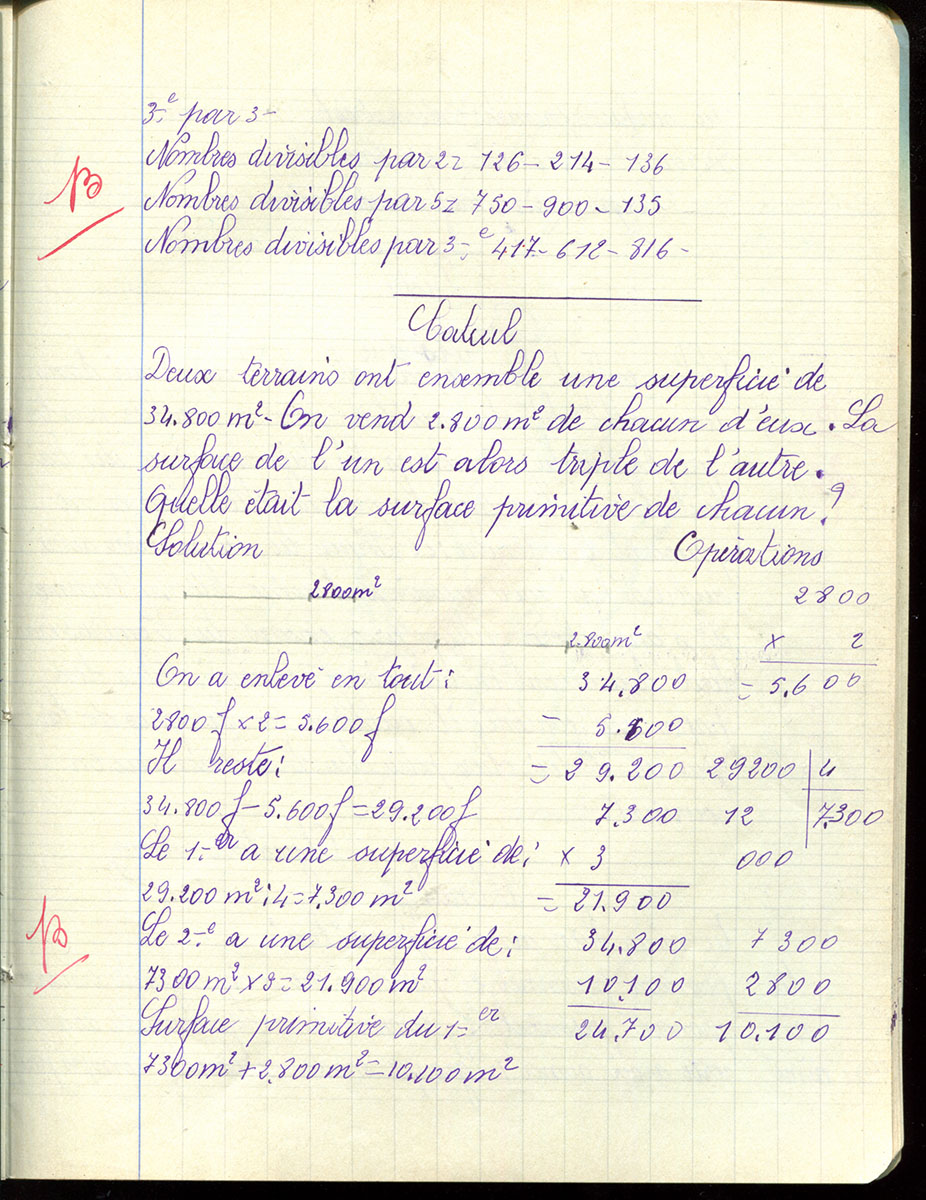 3-e par 3-
Nombres divisibles par 2= 126- 214- 136
B
Nombres divisibles par 5= 750- 900- 135
Nombres divisibles par 3-e 417- 612- 816-
Calcul
Deux terrains ont ensemble une superficie de
34.800 m²- On vend 2.800 m² de chacun d'eux. La
surface de l'un est alors triple de l'autre.
Quelle était la surface primitive de chacun?
Solution Opérations
2800m² 2800
2.800m² x 2
On a enlevé en tout: 34.800 = 5.600
2800 f x 2 = 5.600 f - 5.600
Il reste: = 29.200 29200 4
34.800 f - 5.600 f = 29.200 f 7.300 12 7.300
Le 1-er a une superficie de: x 3 000
29.200 m² : 4 = 7.300 m² = 21.900
B
Le 2-e a une superficie de: 34.800 7300
7300 m² x 3 = 21.900 m² 10.100 2800
Surface primitive du 1-er 24.700 10.100
7300m² + 2.800m² = 10.100m²